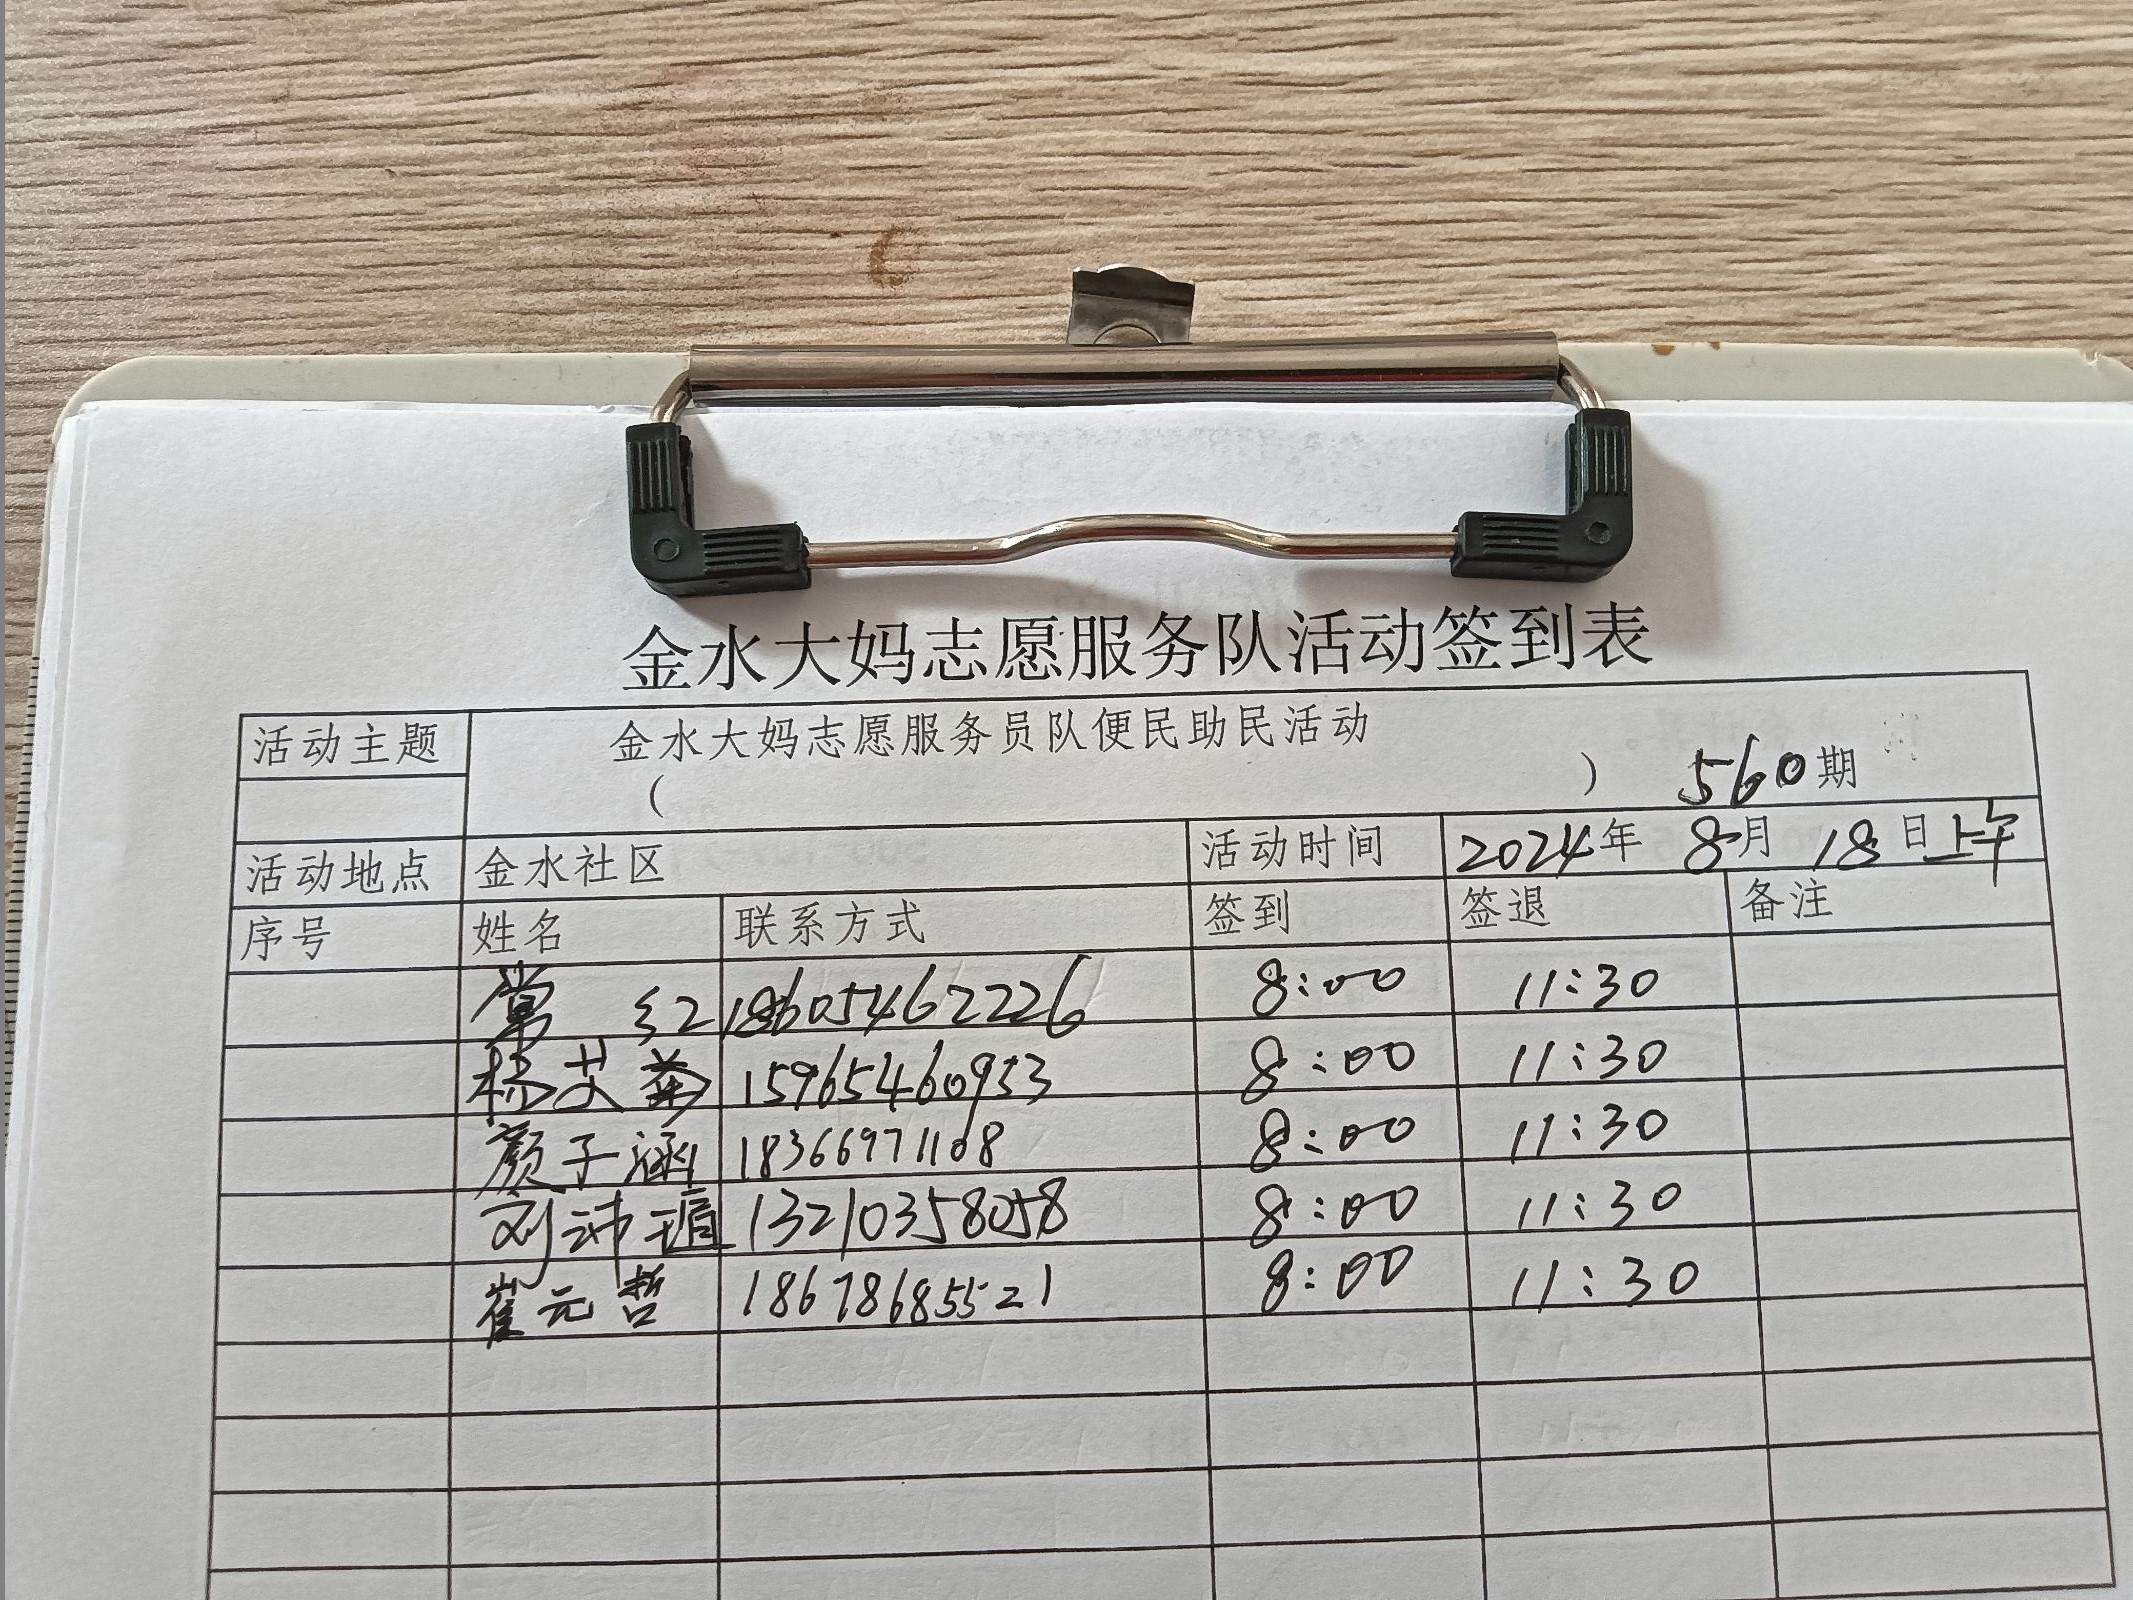 金水大妈志愿服务队活动签到表
活动主题 金水大妈志愿服务员队便民助民活动
( ) 560期
活动地点 金水社区 活动时间 2024年 8月 18日上午
序号 姓名 联系方式 签到 签退 备注
常 红 18605462226 8:00 11:30
杨艾 15965460953 8:00 11:30
颜子涵 18366971108 8:00 11:30
刘沛瑄 13210358058 8:00 11:30
崔元哲 18678685521 8:00 11:30